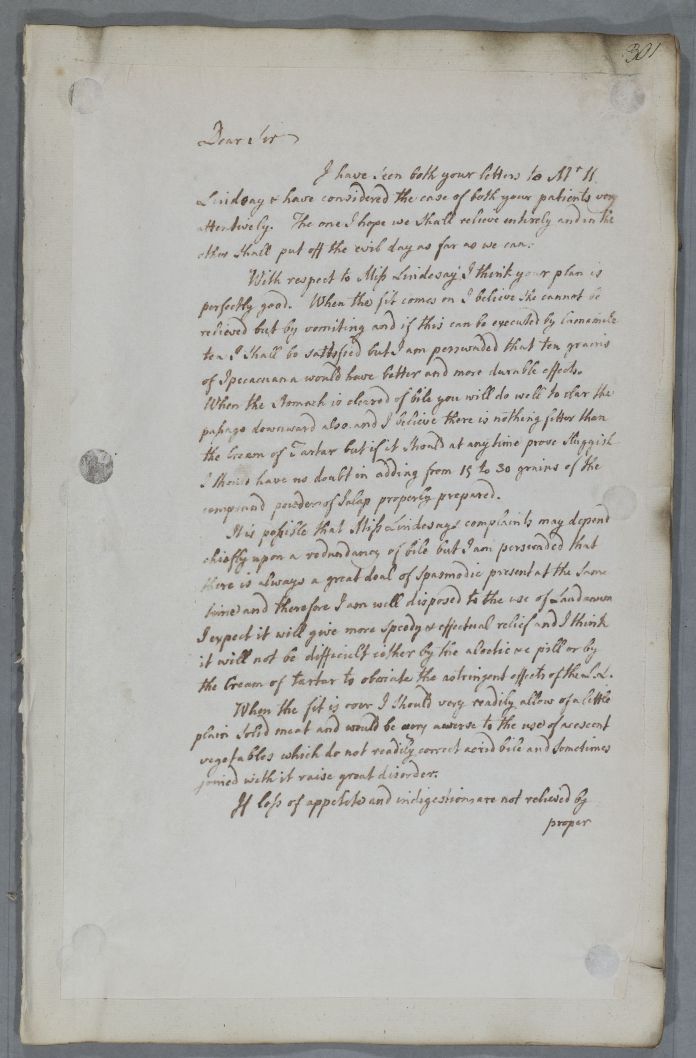 301
Dear Sir
I have seen both your letters to Mr H
Lindsay & have considered the case of both your patients very
attentively. The one I hope we shall relieve entirely and in the
other shall put off the evil day as far as we can.
With respect to Miss Lindesay I think your plan is
perfectly good. When the fit comes on I believe she cannot be
relieved but by vomiting and if this can be executed by Camomile
tea I shall be sattisfied but I am perswaded that ten grains
of Ipecacuana would have better and more durable effects.
When the stomach is cleared of bile you will do well to clear the
passage downward also and I believe there is nothing fitter than
the Cream of Tartar but if it should at any time prove sluggish
I should have no doubt in adding from 15 to 30 grains of the
compound powder of Jalap properly prepared.
It is possible that Miss Lindesays complaints may depend
chiefly upon a redundancy of bile but I am perswaded that
there is always a great deal of spasmodic present at the same
time and therefore I am well disposed to the use of Laudanum
I expect it will give more speedy & effectual relief and I think
it will not be difficult either by the aloetic pill or by
the Cream of tartar to obviate the astringent effects of the L.L.
When the fit is over I should very readily allow of a little
plain solid meat and would be very averse to the use of acescent
vegetables which do not readily correct acrid bile and sometimes
joined with it raise great disorder.
If loss of appetite and indigestion are not relieved by
proper